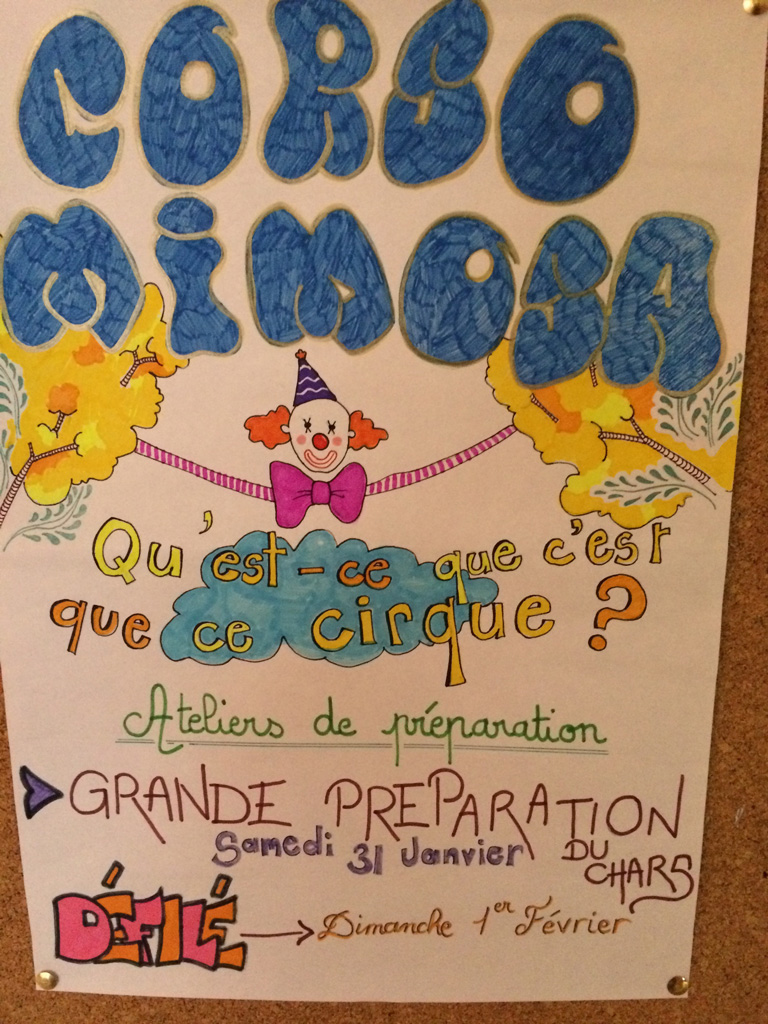 CORSO
MiMOSA
Qu'est-ce que c'est
que ce cirque ?
Ateliers de préparation
GRANDE PREPARATION
DU
CHARS
Samedi 31 Janvier
DÉFILÉ
Dimanche 1er Février